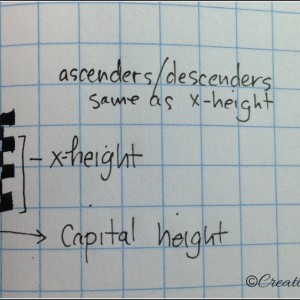 ascenders/descenders
same as x-height
- x-height
→ Capital height